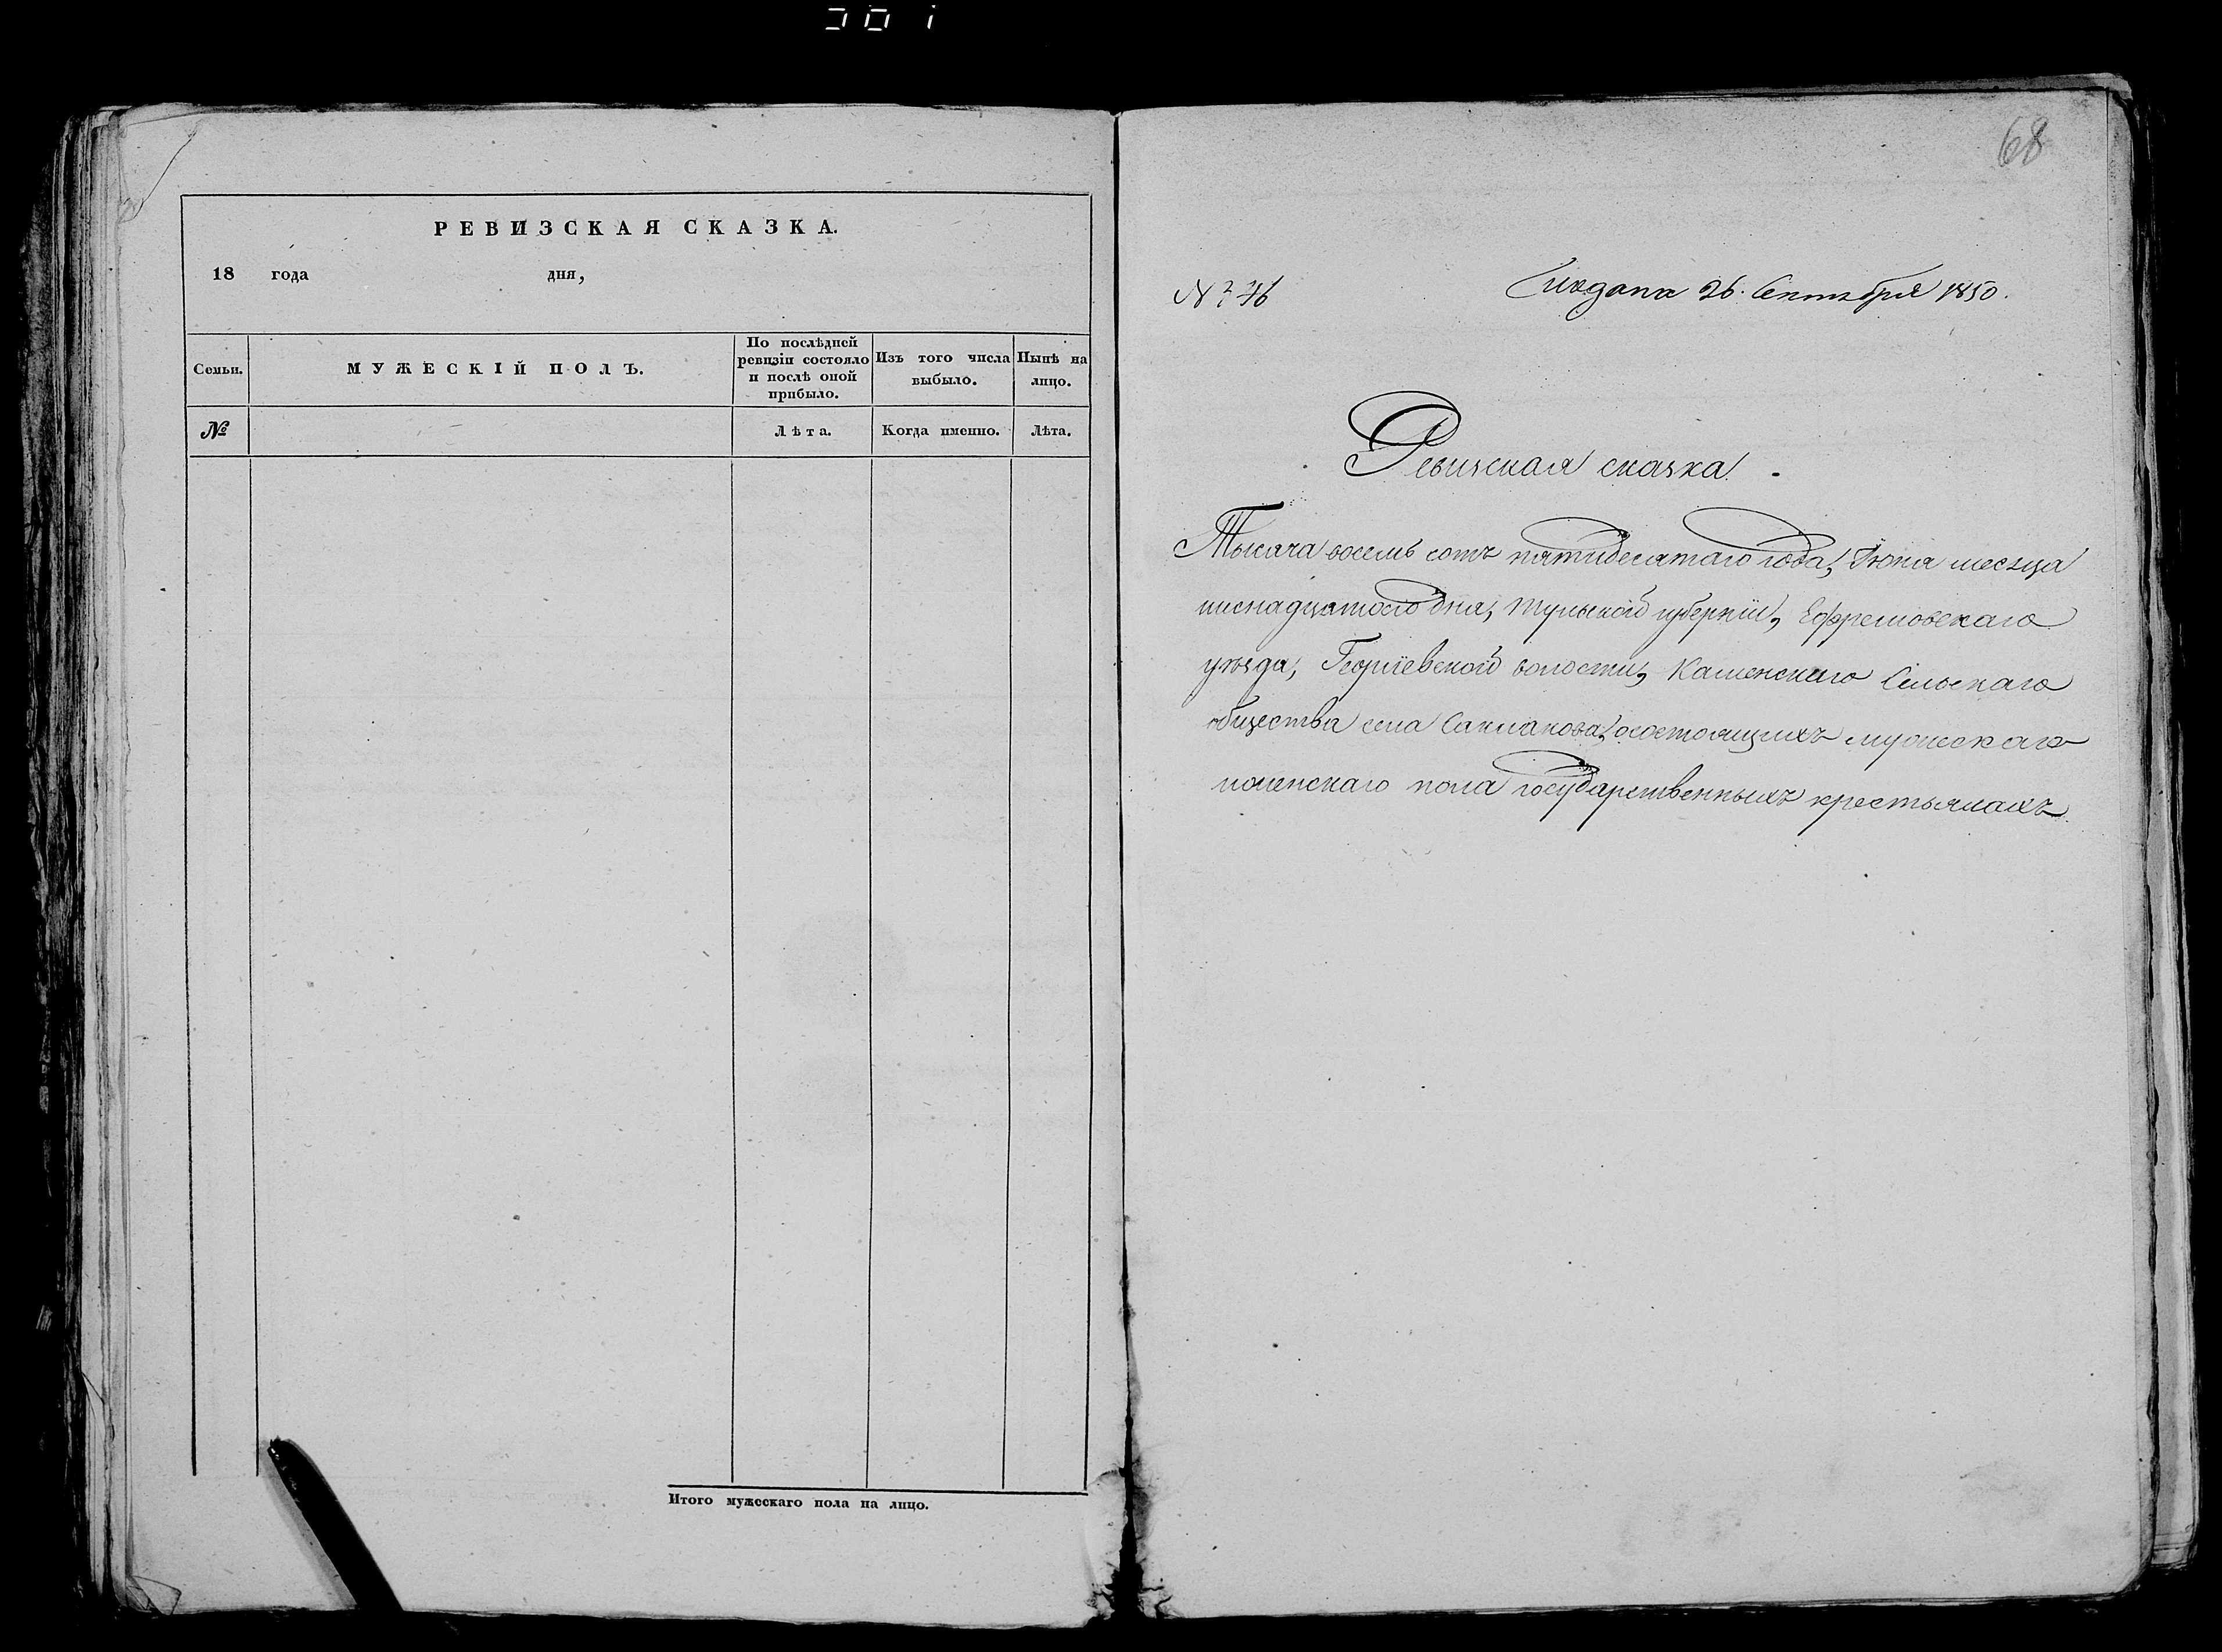 РЕВИЗСКАЯ СКАЗКА.
18 года дня,
Семьи.
МУЖЕСКІЙ ПОЛЪ.
По послѣдней ревизіи состояло и послѣ оной прибыло.
Изъ того числа выбыло.
Нынѣ на лицо.
№
Лѣта.
Когда именно.
Лѣта.
Итого мужескаго пола на лицо.
68
26. Сентября 1850.
Ревизская сказка.
Тысяча восемь сотъ пятидесятаго года, Іюня месяца
шеснадцатого дня, Тульской губерніи, Ефремовскаго
уѣзда, Георгіевской волости, Каменскаго Сельскаго
общества села состоящихъ мужескаго
и женскаго пола государственныхъ крестьянахъ